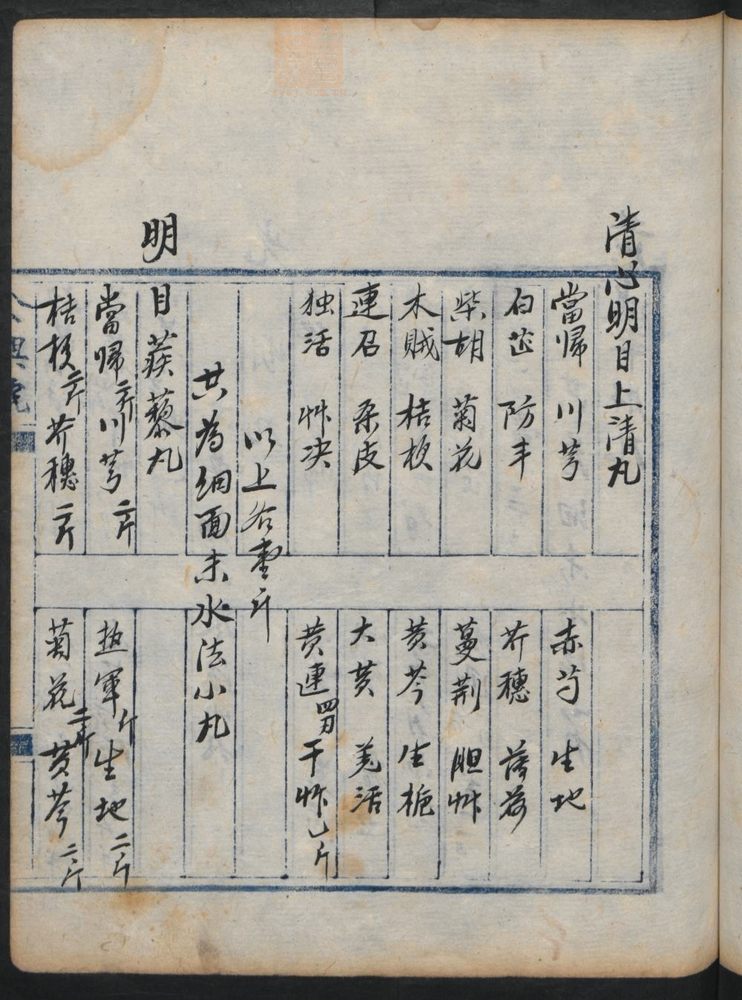 清心明目上清丸
當歸 川芎 赤芍 生地
白芷 防丰 芥穗 薄荷
柴胡 菊花 蔓荆 胆艸
木賊 桔梗 黄芩 生梔
連召 桑皮 大黄 羌活
独活 艸决 黄連 四刄 干艸乚斤
以上各壹斤
共为细面末水法小丸
明目蒺藜丸
當歸二斤 川芎二斤 軍斤 生地二斤
桔梗二斤 芥穗二斤 菊花二斤 黄芩二斤